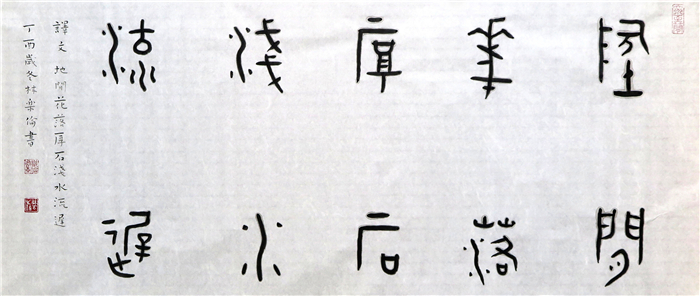 地閒
花落
厚石
淺水
流遲
譯文 地閒花落厚石淺水流遲
丁酉歲冬林書